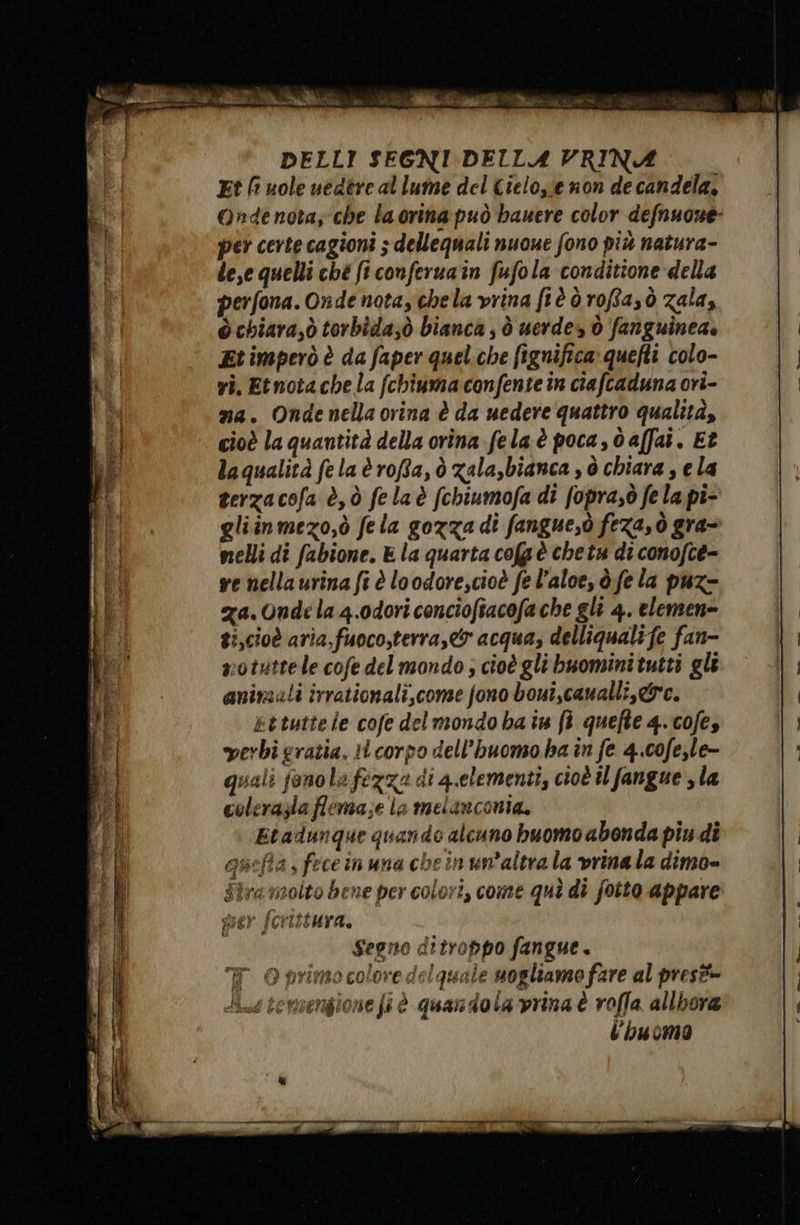 DELLI SEGNI DELLA VRINA
Et ſi uole uedere al lume del Cielo, e non de candela.
Onde nota, che la orina può hauere color defnuoue
per certe cagioni; dellequali nuoue ſono più natura-
le, e quelli che ſi conſerua in ſuſo la conditione della
perſona. Onde nota, che la vrina ſi è ò roſſa, ò zala,
ò chiara, ò torbida, ò bianca, ò uerde, ò ſanguinea.
Et imperò è da ſaper quel che ſignifica queſti colo-
ri. Et nota che la ſchiuma conſente in ciaſcaduna ori-
na. Onde nella orina è da uedere quattro qualità,
cioè la quantità della orina ſe la è poca, ò aſſai. Et
la qualità ſe la è roſſa, ò zala, bianca, ò chiara, e la
terza coſa è, ò ſe la è ſchiumoſa di ſopra, ò ſe la pi-
gli in mezo, ò ſe la gozza di ſangue, ò feza, ò gra-
nelli di ſabione. E la quarta coſa è che tu di conoſce-
re nella urina ſi è lo odore, cioè ſe l'aloe, ò ſe la puz-
za. Onde la 4. odori concioſiacoſa che gli 4. elemen-
ti, cioè aria, fuoco, terra, & acqua, delliquali ſe fan-
no tutte le coſe del mondo; cioè gli huomini tutti gli
animali irrationali, come ſono boui, caualli, &c.
Et tutte le coſe del mondo ha in ſi queſte 4. coſe,
verbi gratia. il corpo dell'huomo ha in ſe 4. coſe, le-
quali ſono la fezza di 4. elementi, cioè il ſangue, la
colera, la flema, e la melanconia.
Et adunque quando alcuno huomo abonda piu di
queſta, fece in una che in un'altra la vrina la dimo-
ſtra molto bene per colori, come quì di ſotto appare
per ſcrittura.
Segno di troppo ſangue.
O primo colore delquale uogliamo fare al preſẽ-
te mengione ſi è quando la vrina è roſſa. allhora
l'huomo